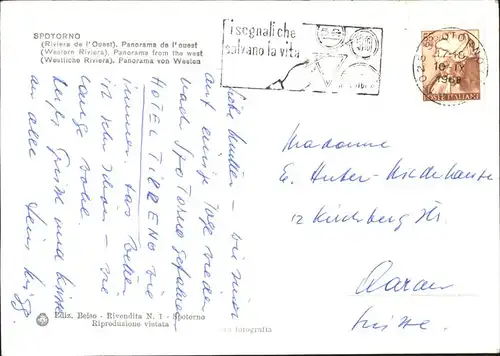 SPOTORNO
(Riviera de l'Ouest). Panorama de l'ouest
(Western Riviera). Panorama from the west
(Westliche Riviera). Panorama von Westen
I segnali che
salvano la vita
SPOTORNO
17-18
10-IV
1968
POSTE ITALIANE
Liebe – wir sind
auf einige Tage wieder
nach Spotorno gefahren
HOTEL TIRRENO wie
immer. Das Wetter
ist sehr schön – wie
lange wohl.
Herzl. Grüsse und Küsse
an alle Dein
Madame
Huber-
12 Kirchberg Str
Aarau
Suisse.
Ediz. Beiso - Rivendita N. 1 - Spotorno
Riproduzione vietata
fotografia